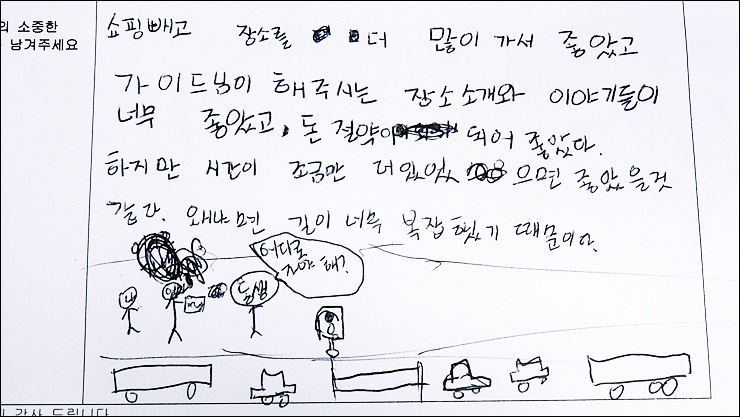 의 소중한
남겨주세요
쇼핑빼고 장소를 더 많이 가서 좋았고
가이드님이 해주시는 장소소개와 이야기들이
너무 좋았고, 돈 절약이 되어 좋았다.
하지만 시간이 조금만 더 있었으면 좋았을것
같다. 왜냐면 길이 너무 복잡했기 때문이다.
어디로
가야 해?
나
엄마
동생
감사 드립니다